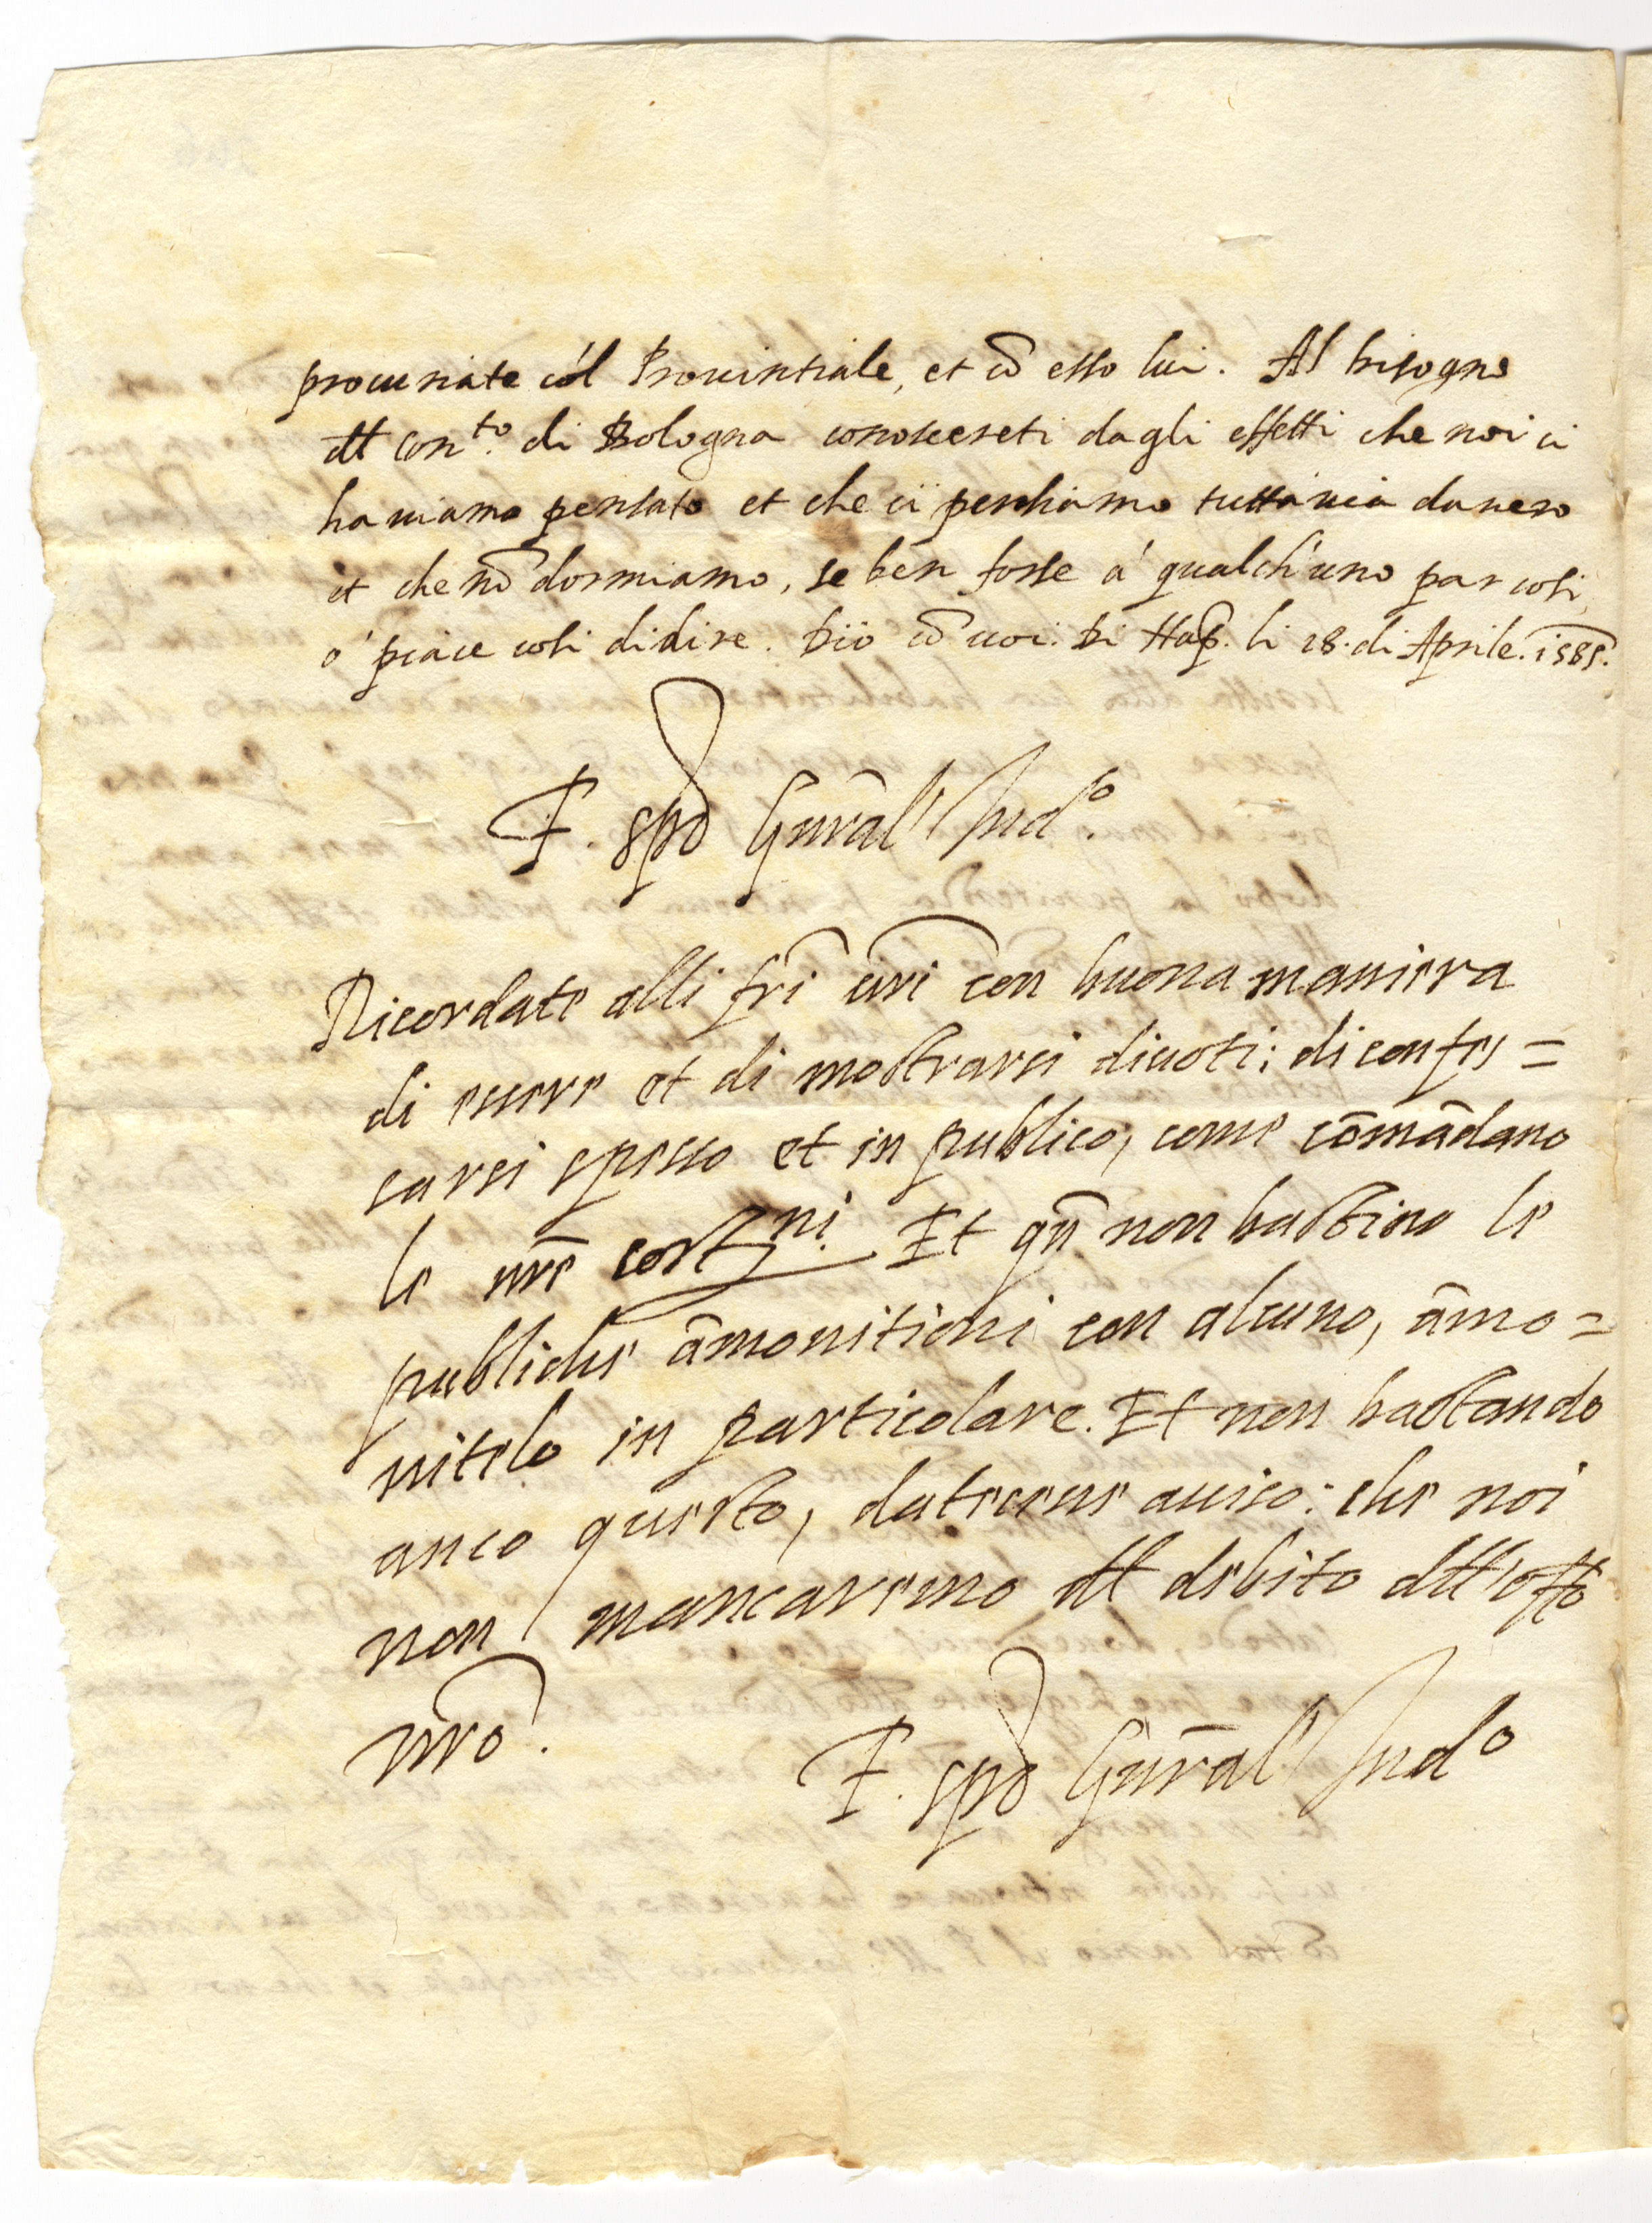 procuriate có'l Prouintiale, et cō esso lui. Al bisogno
dl̄l con.to di Bologna conoscereti dagli effetti che noi ci
hauiamo pensato et che ci pensiamo tuttauia da uero
et che nō dormiamo, se ben forse a' qualch'uno par cosi,
o' piace cosi di dire. Dio cō uoi. Di Nap̄. li 28. di Aprile. 1585.
F. Sp̄o Gn̄rāl' Ind.o
Ricordate alli fr̄i ur̄i con buona maniera
di essere et di mostrarsi diuoti; di confes=
sarsi spesso et in publico, come cōmādano
le nr̄e cost.ni. Et qn̄ non bastino le
publiche āmonitioni con alcuno, āmo=
nitelo in particolare. Et non bastando
anco questo, datecene auiso: che noi
non mancaremo dl̄l debito dl̄l'offo
nr̄o.
F. Sp̄o Gn̄rāl' Ind.o